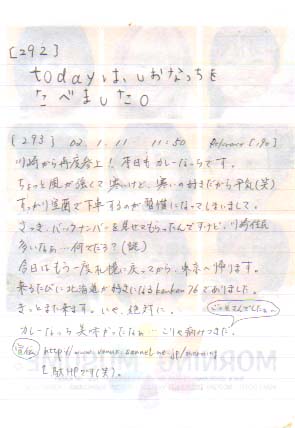 [292]
todayは、しおなっちを
たべました。
[293] 02.1.11 11:50
川崎から再度参上! 本日もカレーなっちです。
ちょっと風が強くて寒いけど、寒いの好きだから平気(笑)
すっかり 下車するのが習慣になってしまいまして。
さっき、バックナンバーを見せてもらったんですけど、川崎住民
多いなぁ…何でだろ?(謎)
今日はもう一度札幌に戻ってから、東京へ帰ります。
来るたびに北海道が好きになる 76でありました。
きっとまた来ます。いや、絶対に。
カレーなっち 美味かったなぁ…
ごちそうさんでした。
宣伝 http://www. .ne.jp/
(笑)。
MORNING